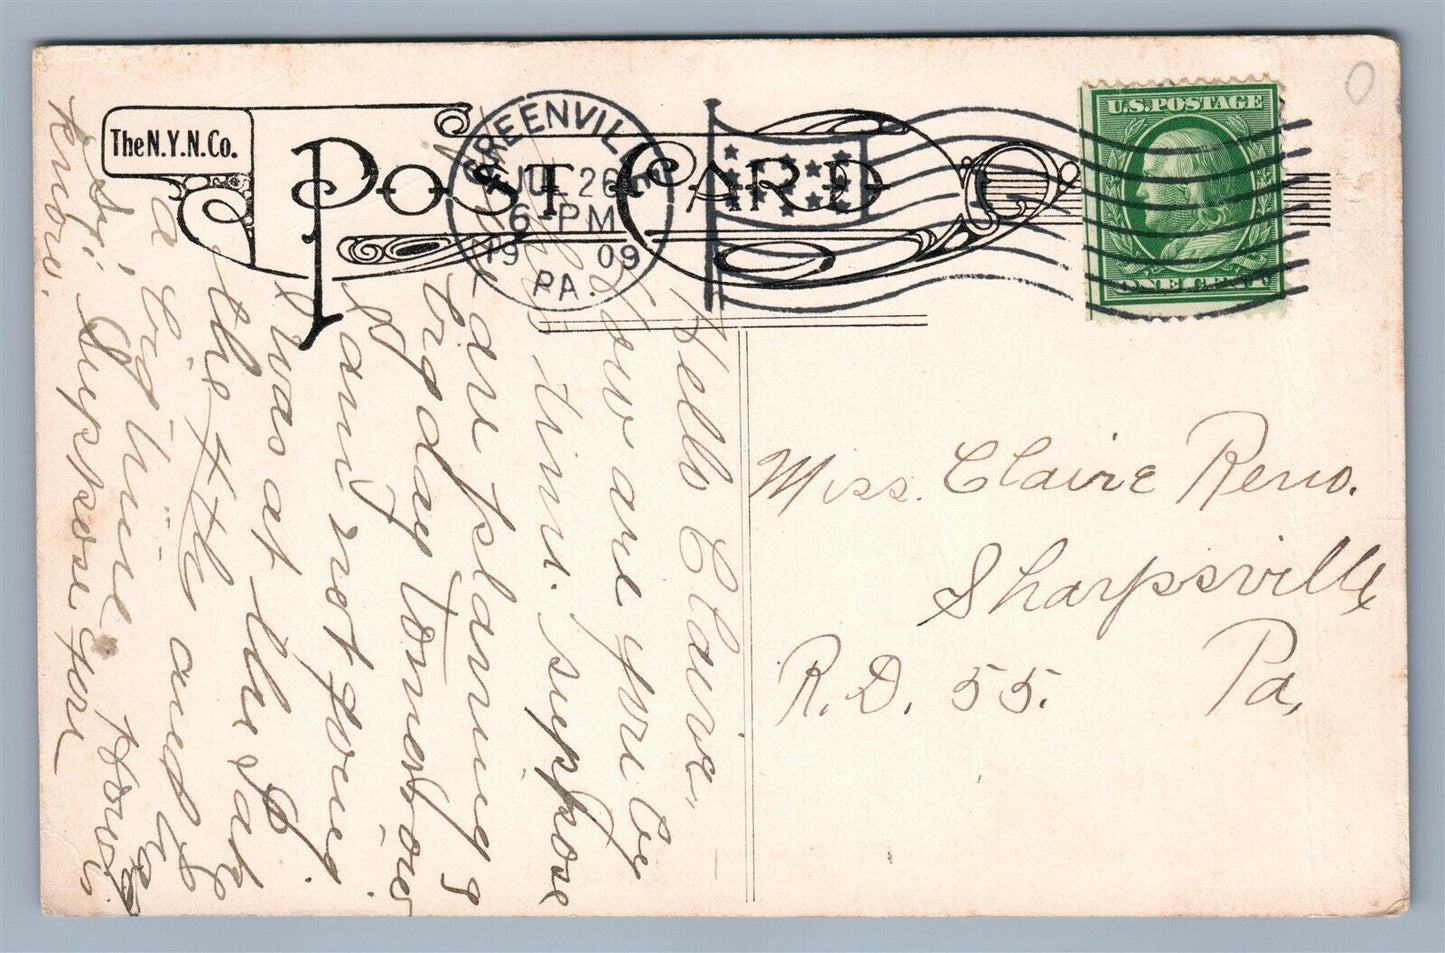 The N.Y.N. Co.
POST CARD
GREENVILLE
JUL 26
6-PM
1909
PA.
U.S. POSTAGE
ONE CENT
0
Hello Claire,
How are you by
time. suppose
are planning
big day
I am not going
I was at the
the little and
a big time
suppose you
Miss. Claire Reno.
Sharpsville
Pa,
R.D. 55.